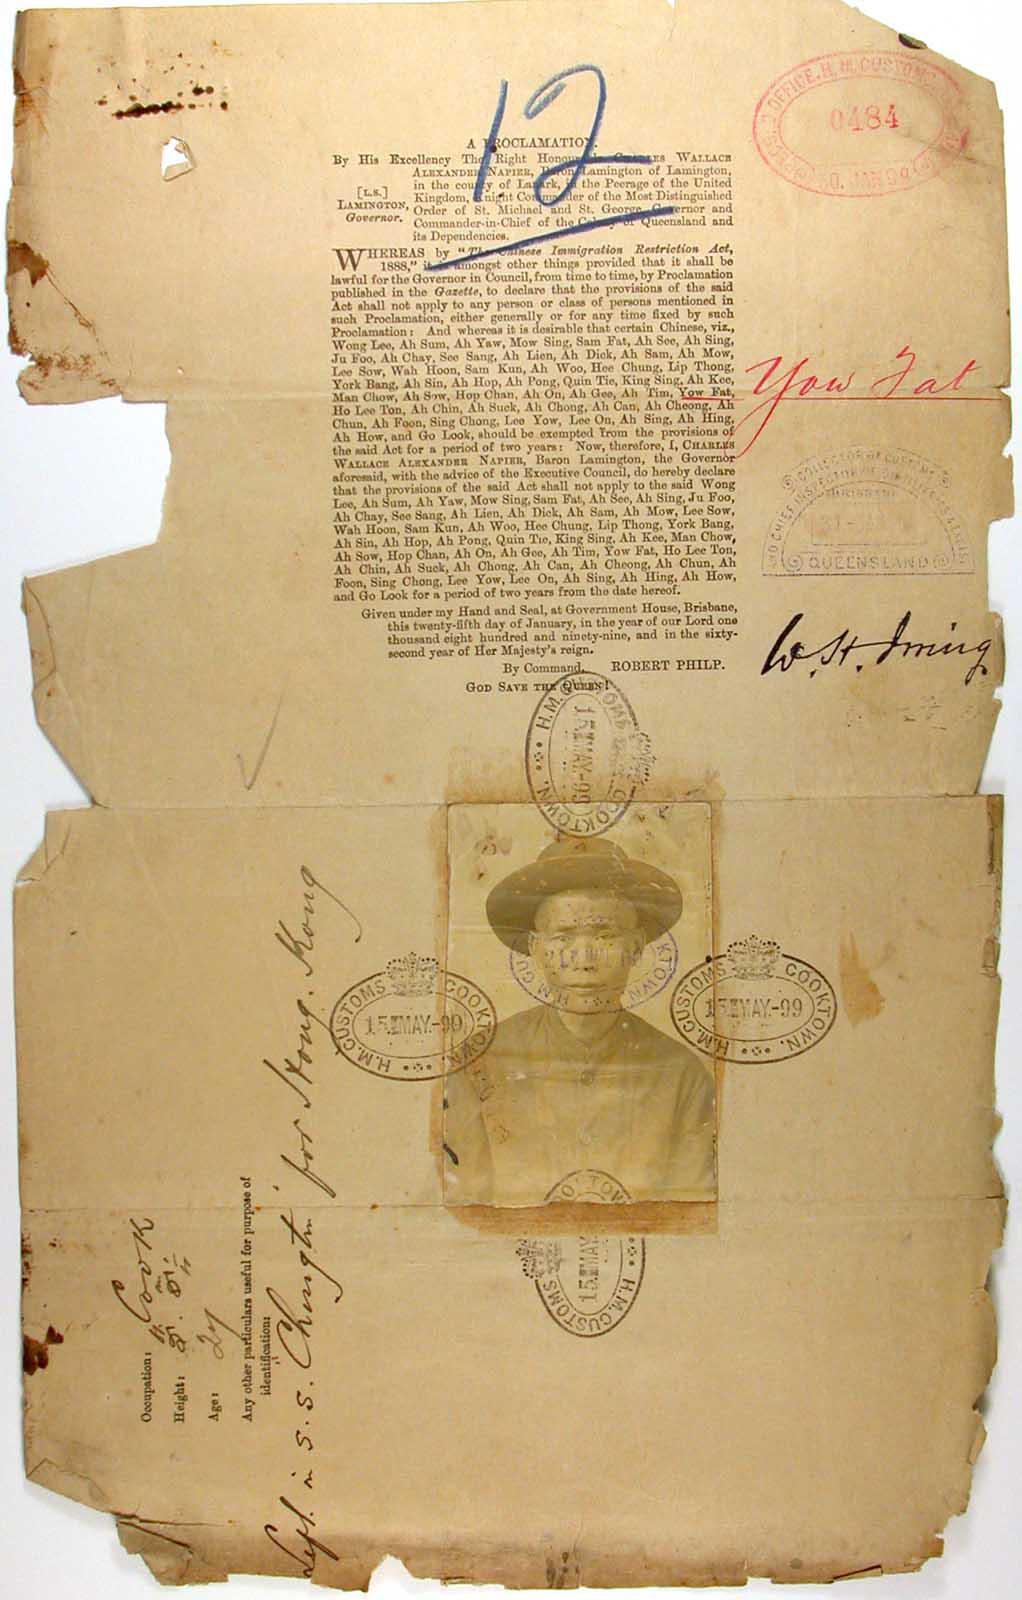 12
OFFICE. H. M. CUSTOMS
0484
30. JAN 99
A PROCLAMATION.
By His Excellency The Right Honourable CHARLES WALLACE
ALEXANDER NAPIER, Baron Lamington of Lamington,
in the county of Lanark, in the Peerage of the United
Kingdom, Knight Commander of the Most Distinguished
Order of St. Michael and St. George, Governor and
Commander-in-Chief of the Colony of Queensland and
its Dependencies.
[L.S.]
LAMINGTON,
Governor.
WHEREAS by "The Chinese Immigration Restriction Act,
1888," it is amongst other things provided that it shall be
lawful for the Governor in Council, from time to time, by Proclamation
published in the Gazette, to declare that the provisions of the said
Act shall not apply to any person or class of persons mentioned in
such Proclamation, either generally or for any time fixed by such
Proclamation: And whereas it is desirable that certain Chinese, viz.,
Wong Lee, Ah Sum, Ah Yaw, Mow Sing, Sam Fat, Ah See, Ah Sing,
Ju Foo, Ah Chay, See Sang, Ah Lien, Ah Dick, Ah Sam, Ah Mow,
Lee Sow, Wah Hoon, Sam Kun, Ah Woo, Hee Chung, Lip Thong,
York Bang, Ah Sin, Ah Hop, Ah Pong, Quin Tie, King Sing, Ah Kee,
Man Chow, Ah Sow, Hop Chan, Ah On, Ah Gee, Ah Tim, Yow Fat,
Ho Lee Ton, Ah Chin, Ah Suck, Ah Chong, Ah Can, Ah Cheong, Ah
Chun, Ah Foon, Sing Chong, Lee Yow, Lee On, Ah Sing, Ah Hing,
Ah How, and Go Look, should be exempted from the provisions of
the said Act for a period of two years: Now, therefore, I, CHARLES
WALLACE ALEXANDER NAPIER, Baron Lamington, the Governor
aforesaid, with the advice of the Executive Council, do hereby declare
that the provisions of the said Act shall not apply to the said Wong
Lee, Ah Sum, Ah Yaw, Mow Sing, Sam Fat, Ah See, Ah Sing, Ju Foo,
Ah Chay, See Sang, Ah Lien, Ah Dick, Ah Sam, Ah Mow, Lee Sow,
Wah Hoon, Sam Kun, Ah Woo, Hee Chung, Lip Thong, York Bang,
Ah Sin, Ah Hop, Ah Pong, Quin Tie, King Sing, Ah Kee, Man Chow,
Ah Sow, Hop Chan, Ah On, Ah Gee, Ah Tim, Yow Fat, Ho Lee Ton,
Ah Chin, Ah Suck, Ah Chong, Ah Can, Ah Cheong, Ah Chun, Ah
Foon, Sing Chong, Lee Yow, Lee On, Ah Sing, Ah Hing, Ah How,
and Go Look for a period of two years from the date hereof.
Given under my Hand and Seal, at Government House, Brisbane,
this twenty-fifth day of January, in the year of our Lord one
thousand eight hundred and ninety-nine, and in the sixty-
second year of Her Majesty's reign.
By Command, ROBERT PHILP.
GOD SAVE THE QUEEN!
Yow Fat
COLLECTOR OF CUSTOMS
AND CHIEF INSPECTOR OF
BRISBANE
QUEENSLAND
W. H. Irving
H.M. CUSTOMS COOKTOWN.
15 MAY.-99
H.M. CUSTOMS COOKTOWN.
15 MAY.-99
H.M. CUSTOMS COOKTOWN.
15 MAY.-99
H.M. CU KTOWN.
H.M. CUSTOMS
15 MAY
Occupation: Cook
Height:
Age: 27
Any other particulars useful for purpose of
identification:
Left. in S.S. "Chingtu" for Hong. Kong